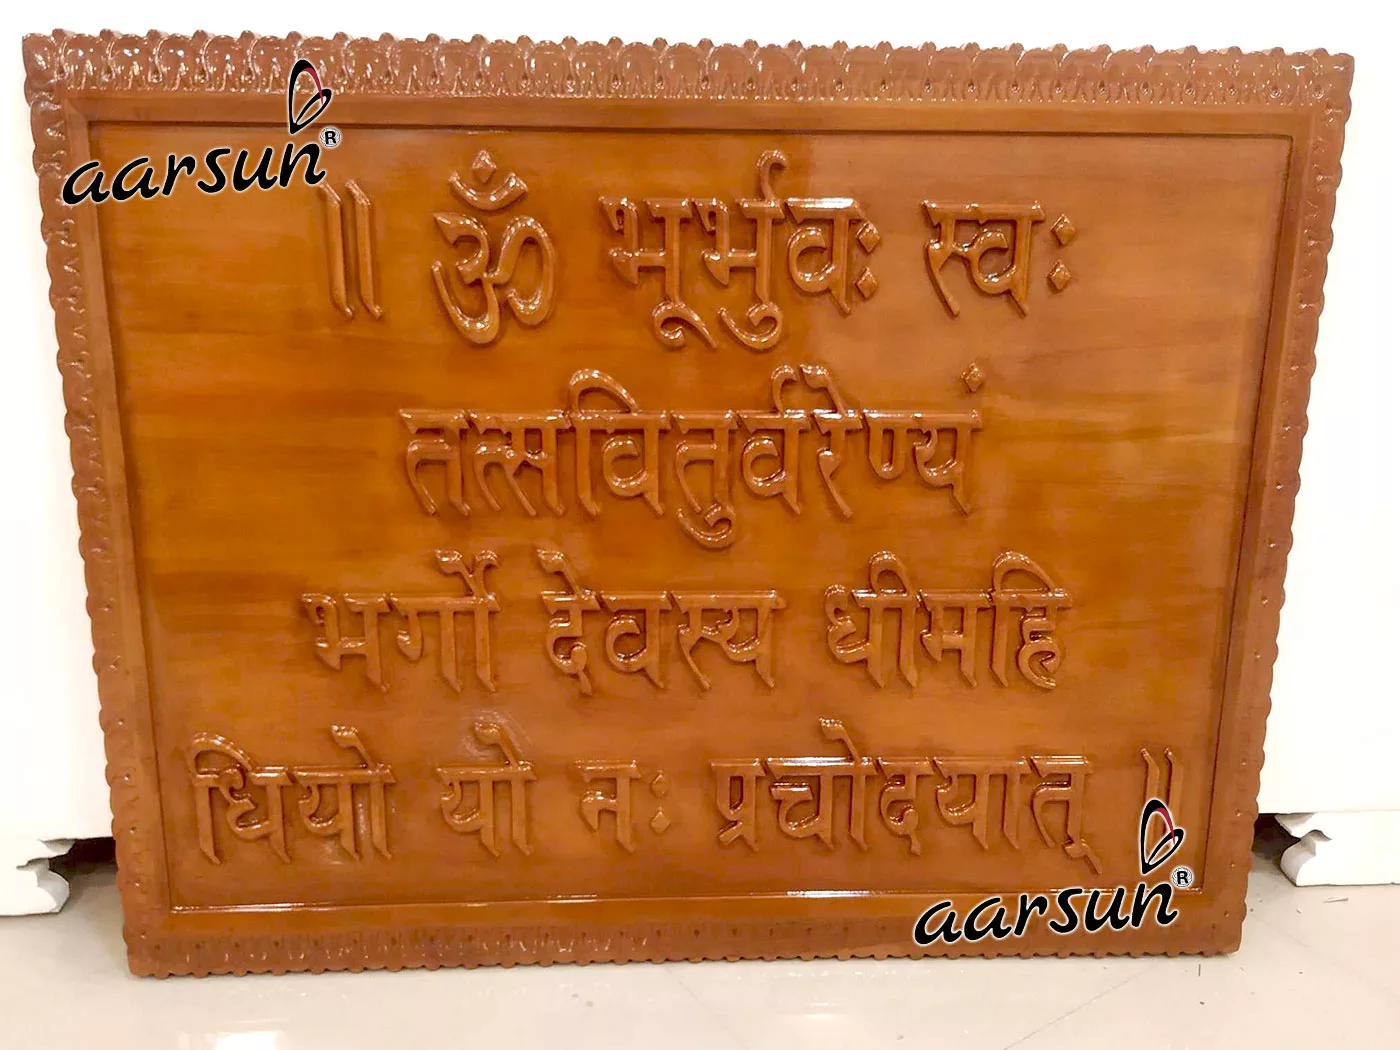 aarsun®
॥ ॐ भूर्भुवः स्वः
तत्सवितुर्वरेण्यं
भर्गो देवस्य धीमहि
धियो यो नः प्रचोदयात् ॥
aarsun®